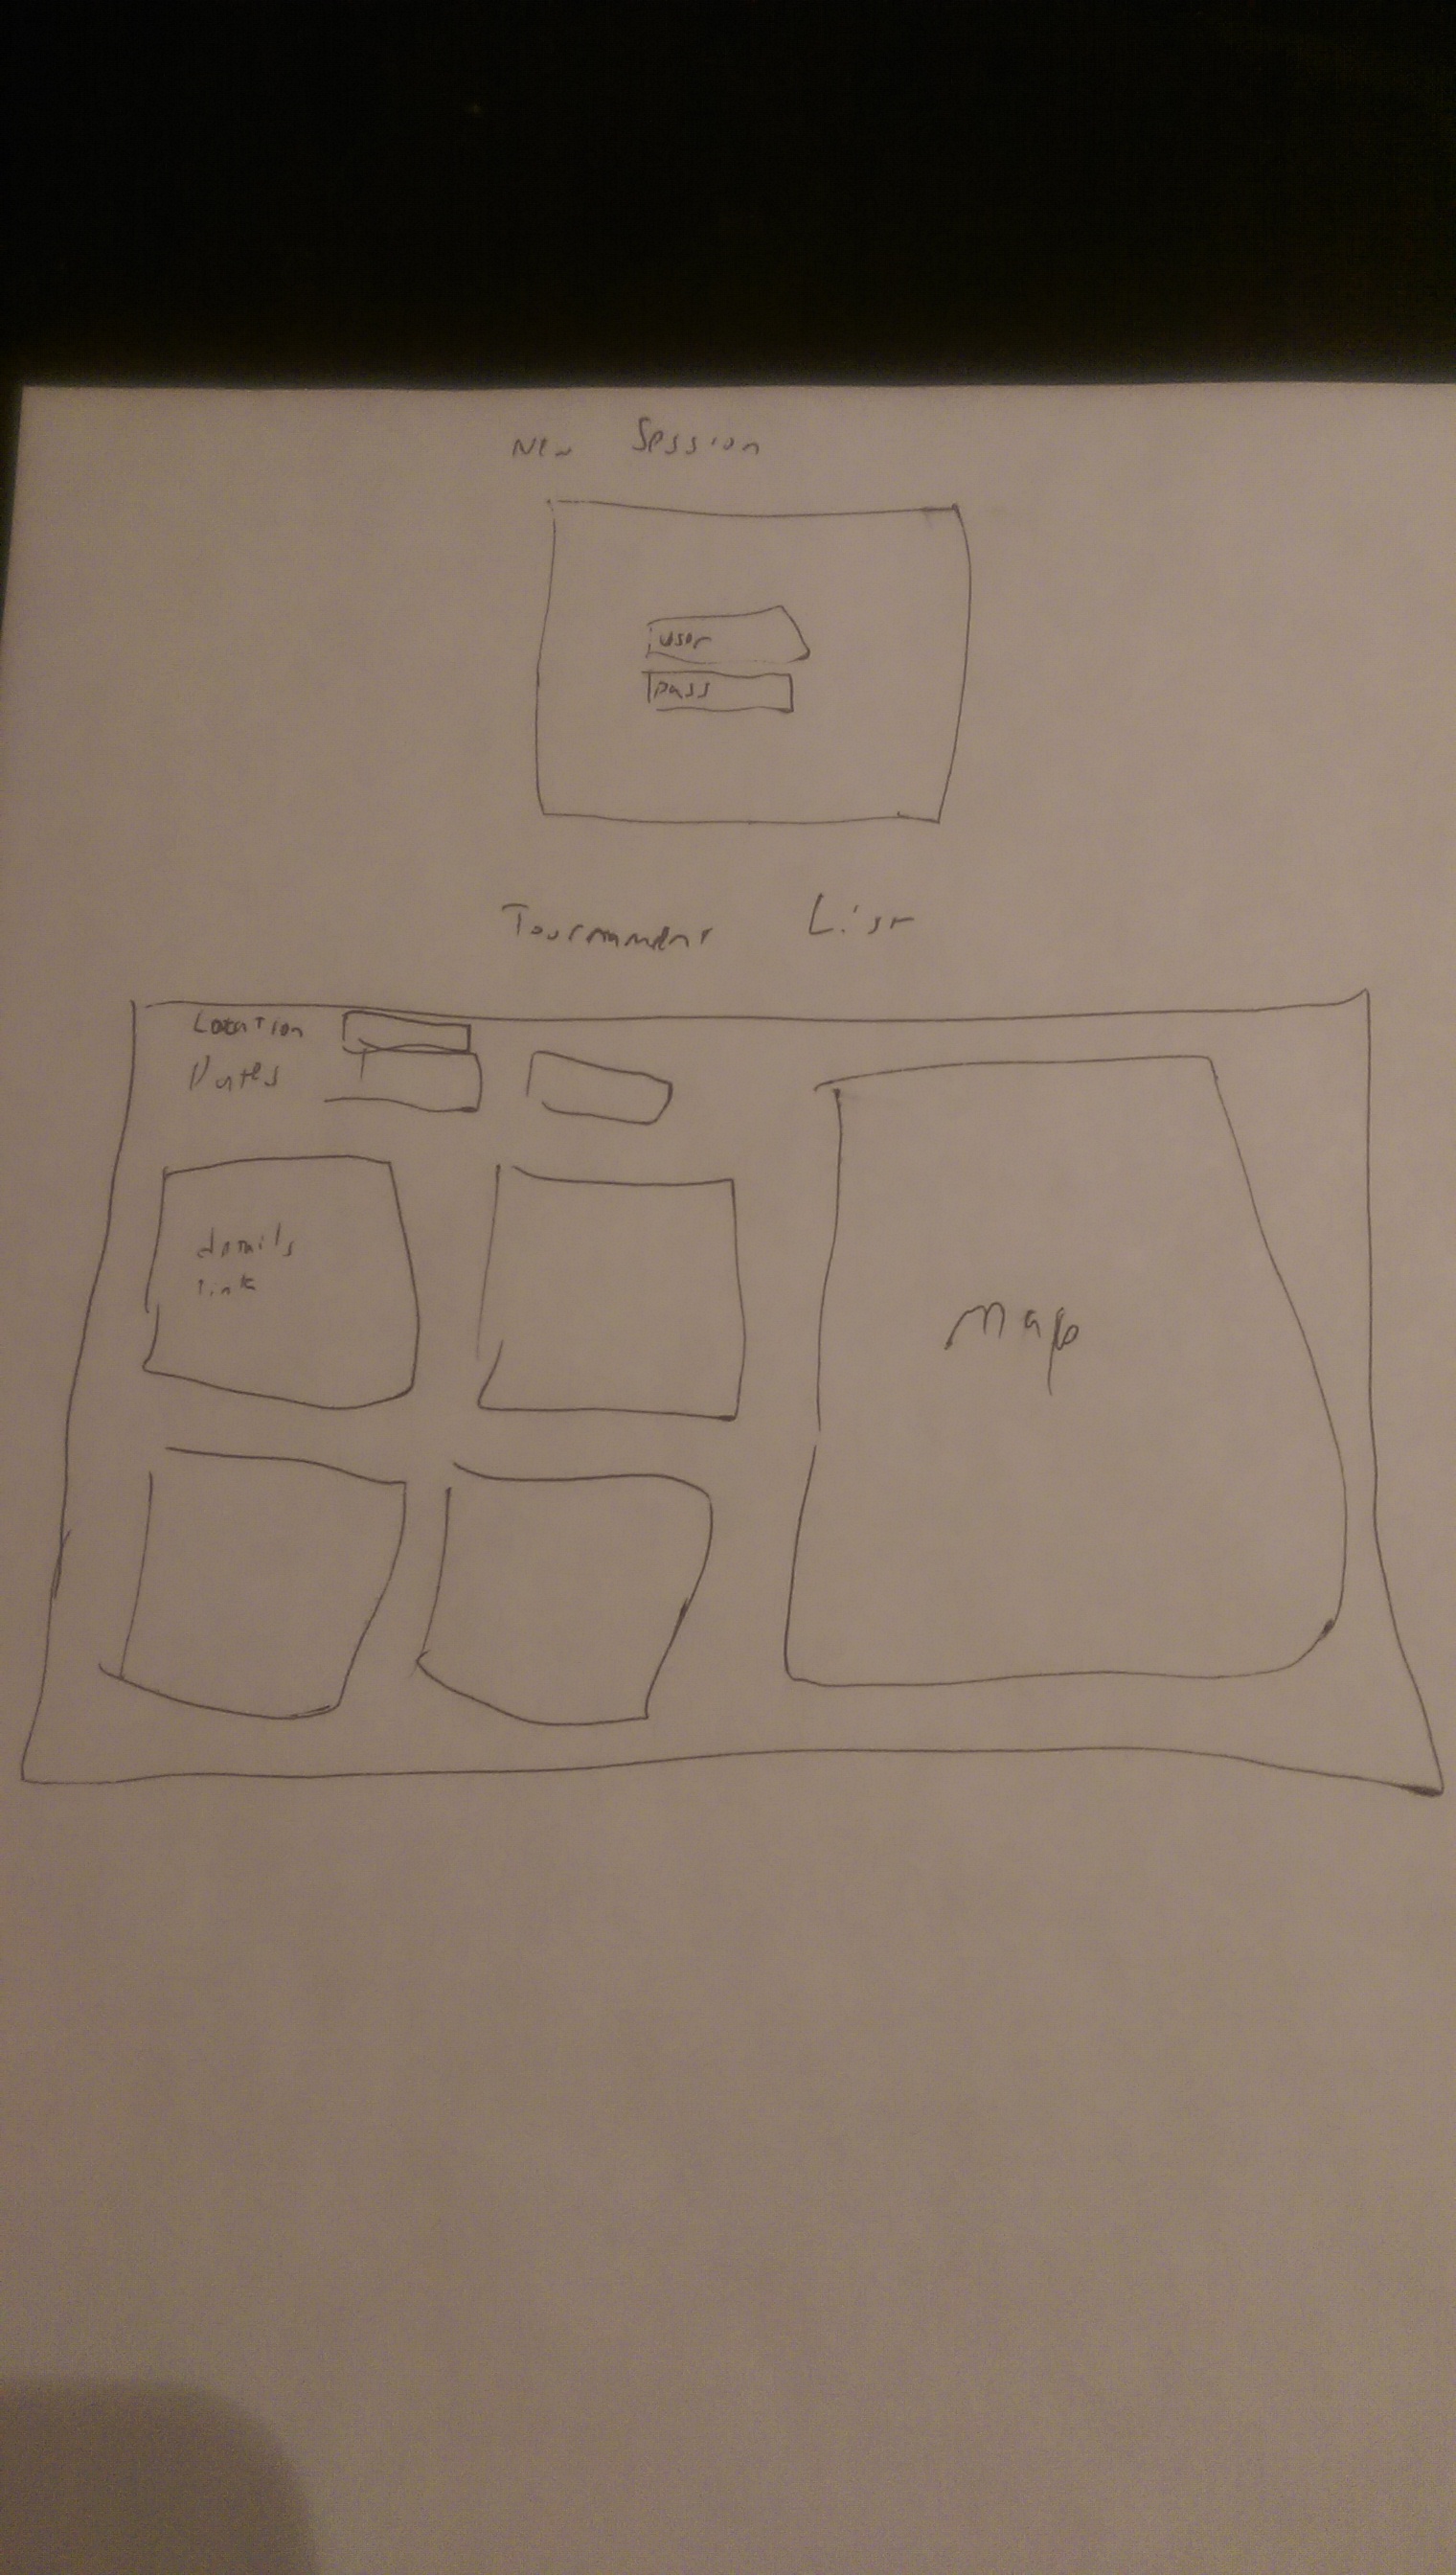 New Session
user
pass
Tournament List
Location
Dates
details
link
Map